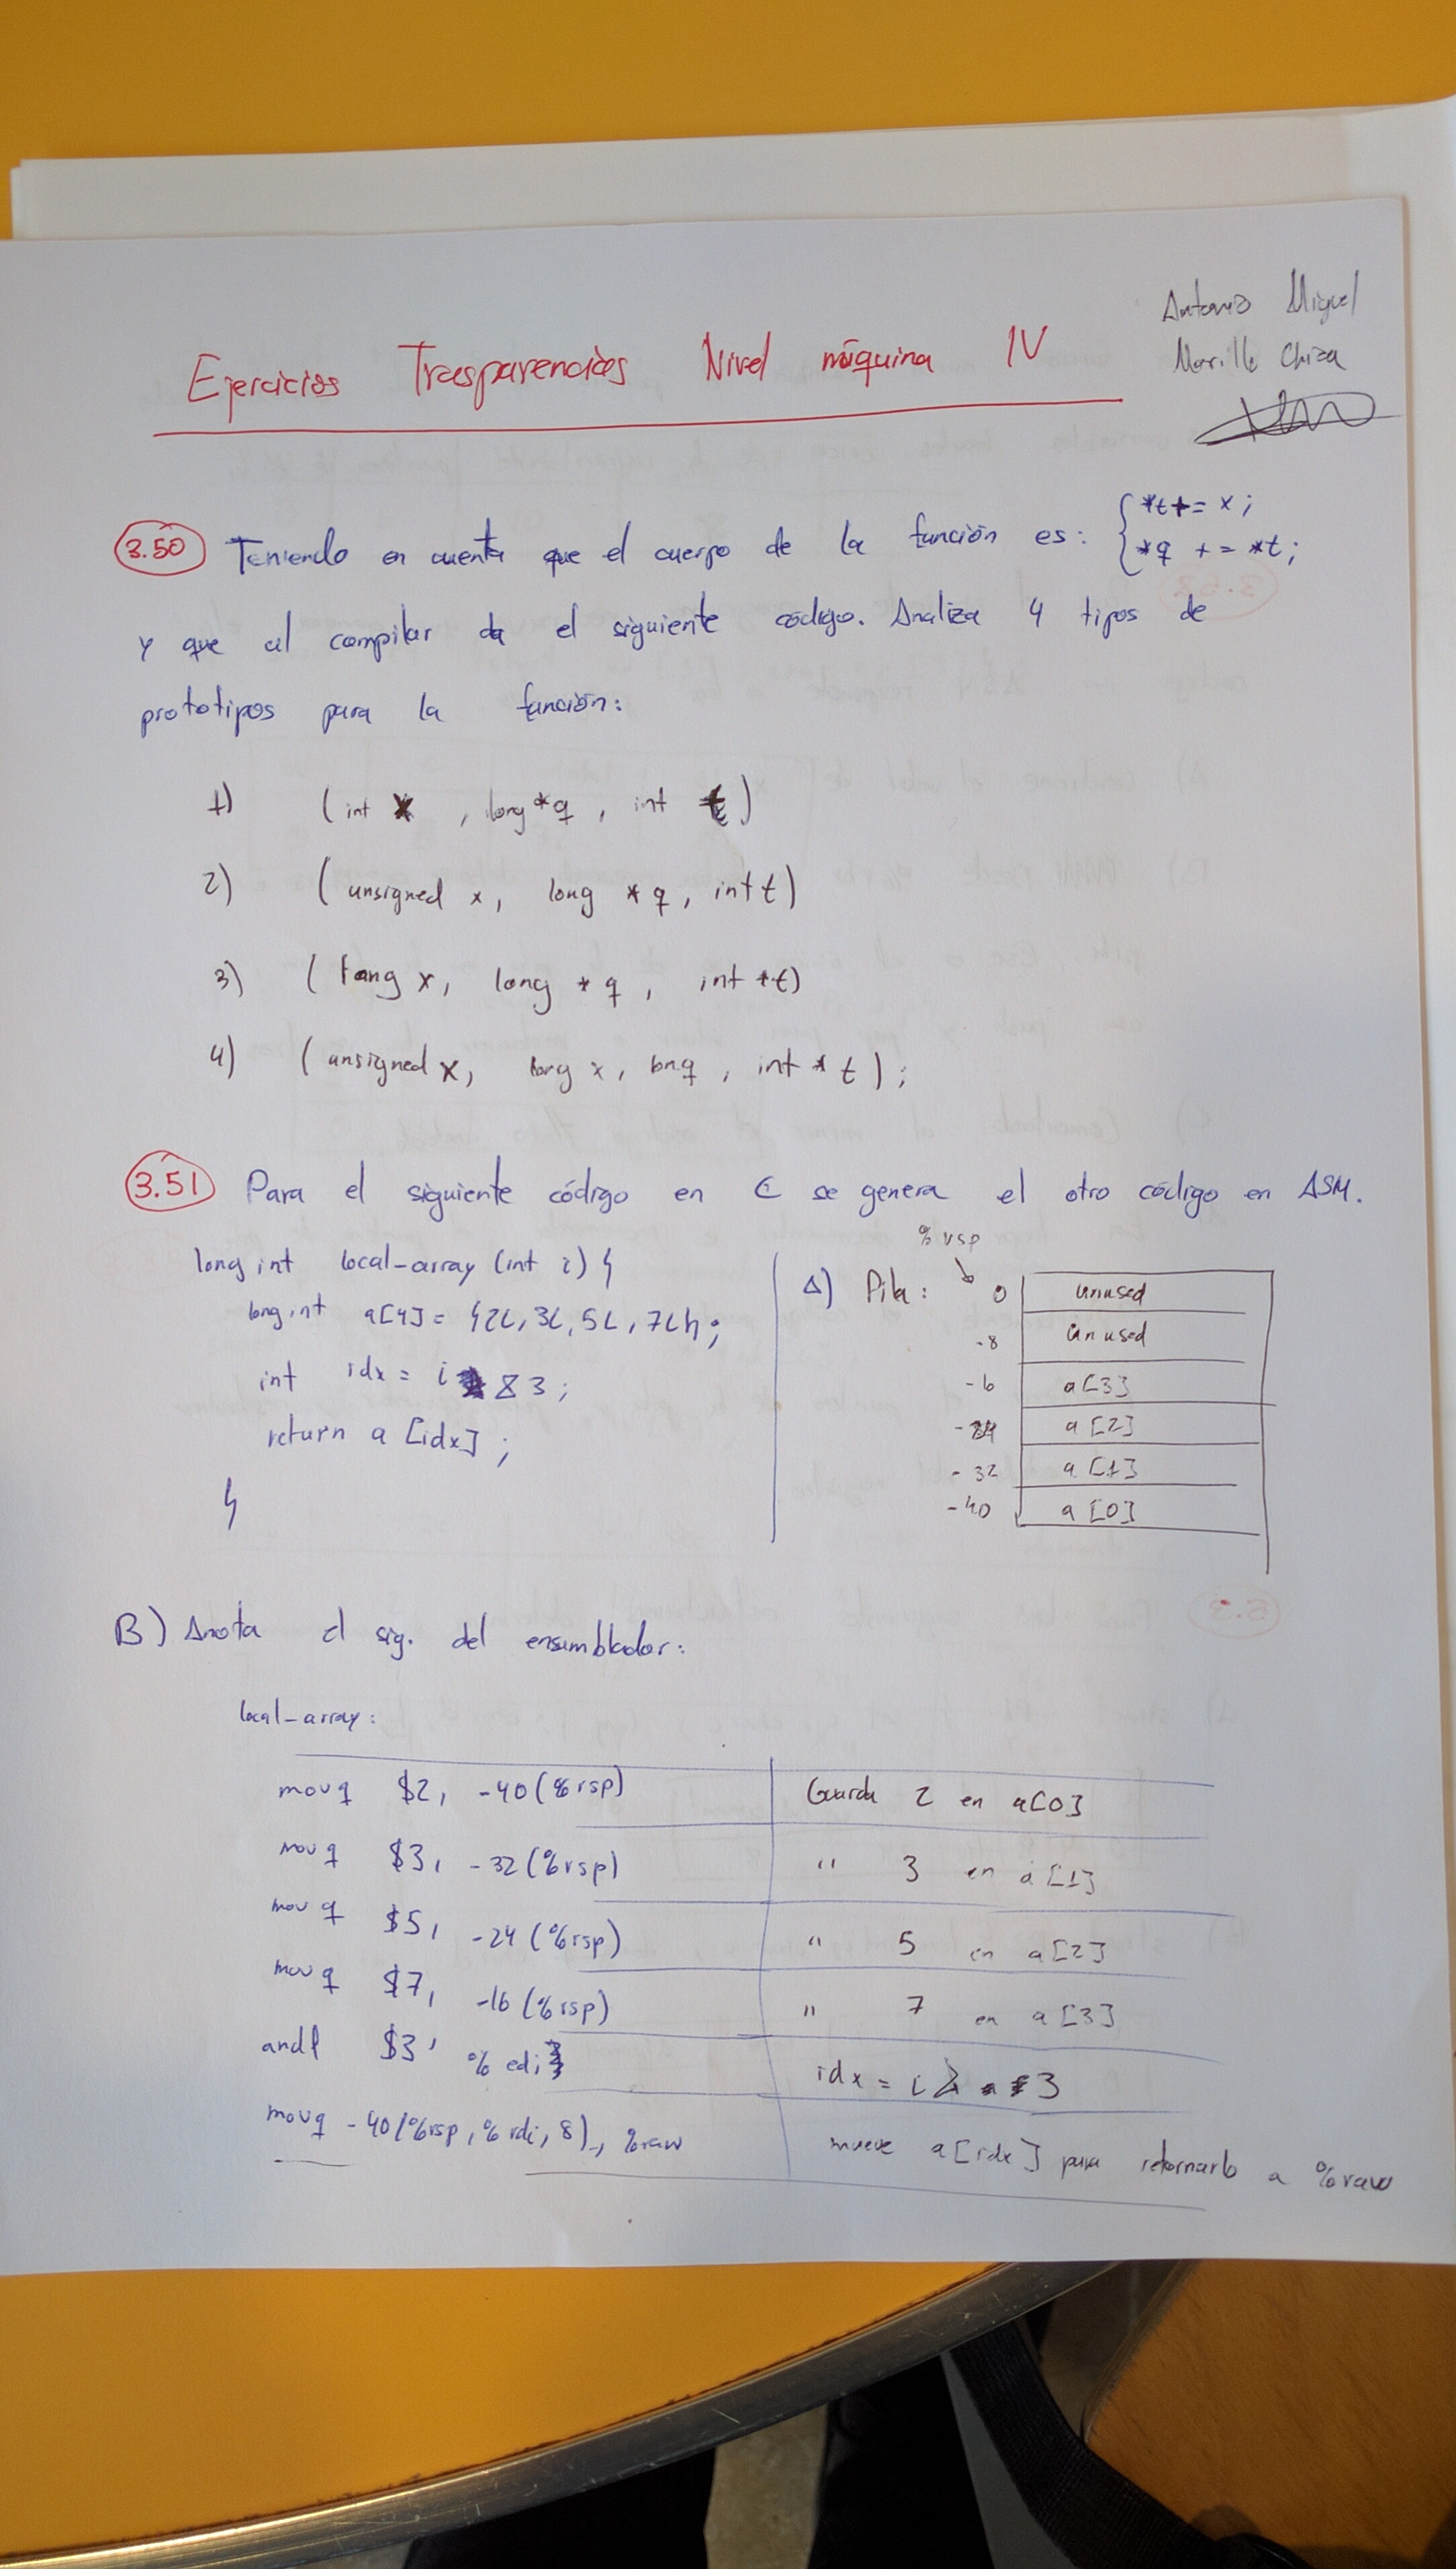 Antonio Miguel
Morillo Chica
Ejercicios Trasparencias Nivel máquina IV
3.50 Teniendo en cuenta que el cuerpo de la función es: { *t += x;
*q += *t;
y que al compilar da el siguiente código. Analiza 4 tipos de
prototipos para la función:
1) (int x, long *q, int t)
2) (unsigned x, long *q, int t)
3) (long x, long *q, int *t)
4) (unsigned x, long x, long, int *t);
3.51 Para el siguiente código en C se genera el otro código en ASM.
long int local-array (int i) {
long int a[4] = {2L, 3L, 5L, 7L};
int idx = i & 3;
return a [idx];
}
A) Pila:
%rsp
0 unused
-8 unused
-6 a[3]
-24 a[2]
-32 a[1]
-40 a[0]
B) Anota el sig. del ensamblador:
local-array:
movq $2, -40(%rsp) Guarda 2 en a[0]
movq $3, -32(%rsp) " 3 en a[1]
movq $5, -24(%rsp) " 5 en a[2]
movq $7, -16(%rsp) " 7 en a[3]
andl $3, %edi idx = i & 3
movq -40(%rsp, %rdi, 8), %raw mueve a[idx] para retornarlo a %raw